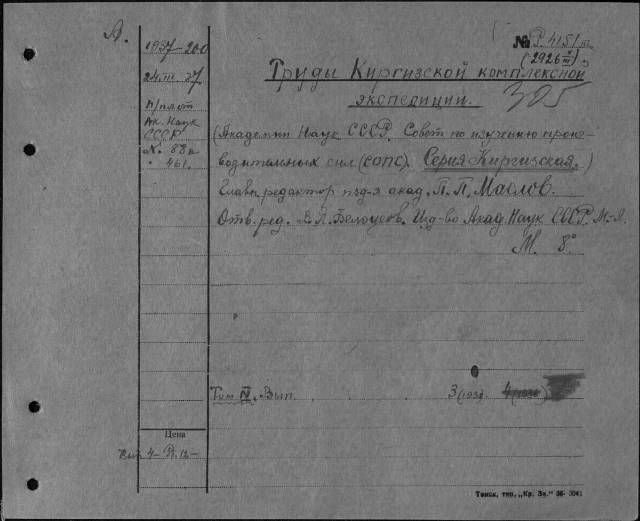 А.
№ Р. 4151 III
(2926 II)
1937-200
24.III.37
Труды Киргизской комплексной
экспедиции.
305
Ак. Наук
СССР
461.
(Академии Наук СССР. Совет по изучению произ-
водительных сил (СОПС). Серия Киргизская.)
Главн. редактор изд-я акад. П. П. Маслов.
Отв. ред. В. Л. Белоусов. Изд-во Акад. Наук СССР. М.-Л.
М. 8°
Том IV. Вып. 3 (193 4 (1936)
Цена
4- Р. 12-
Томск, тип. „Кр. Зн." 36- 3041